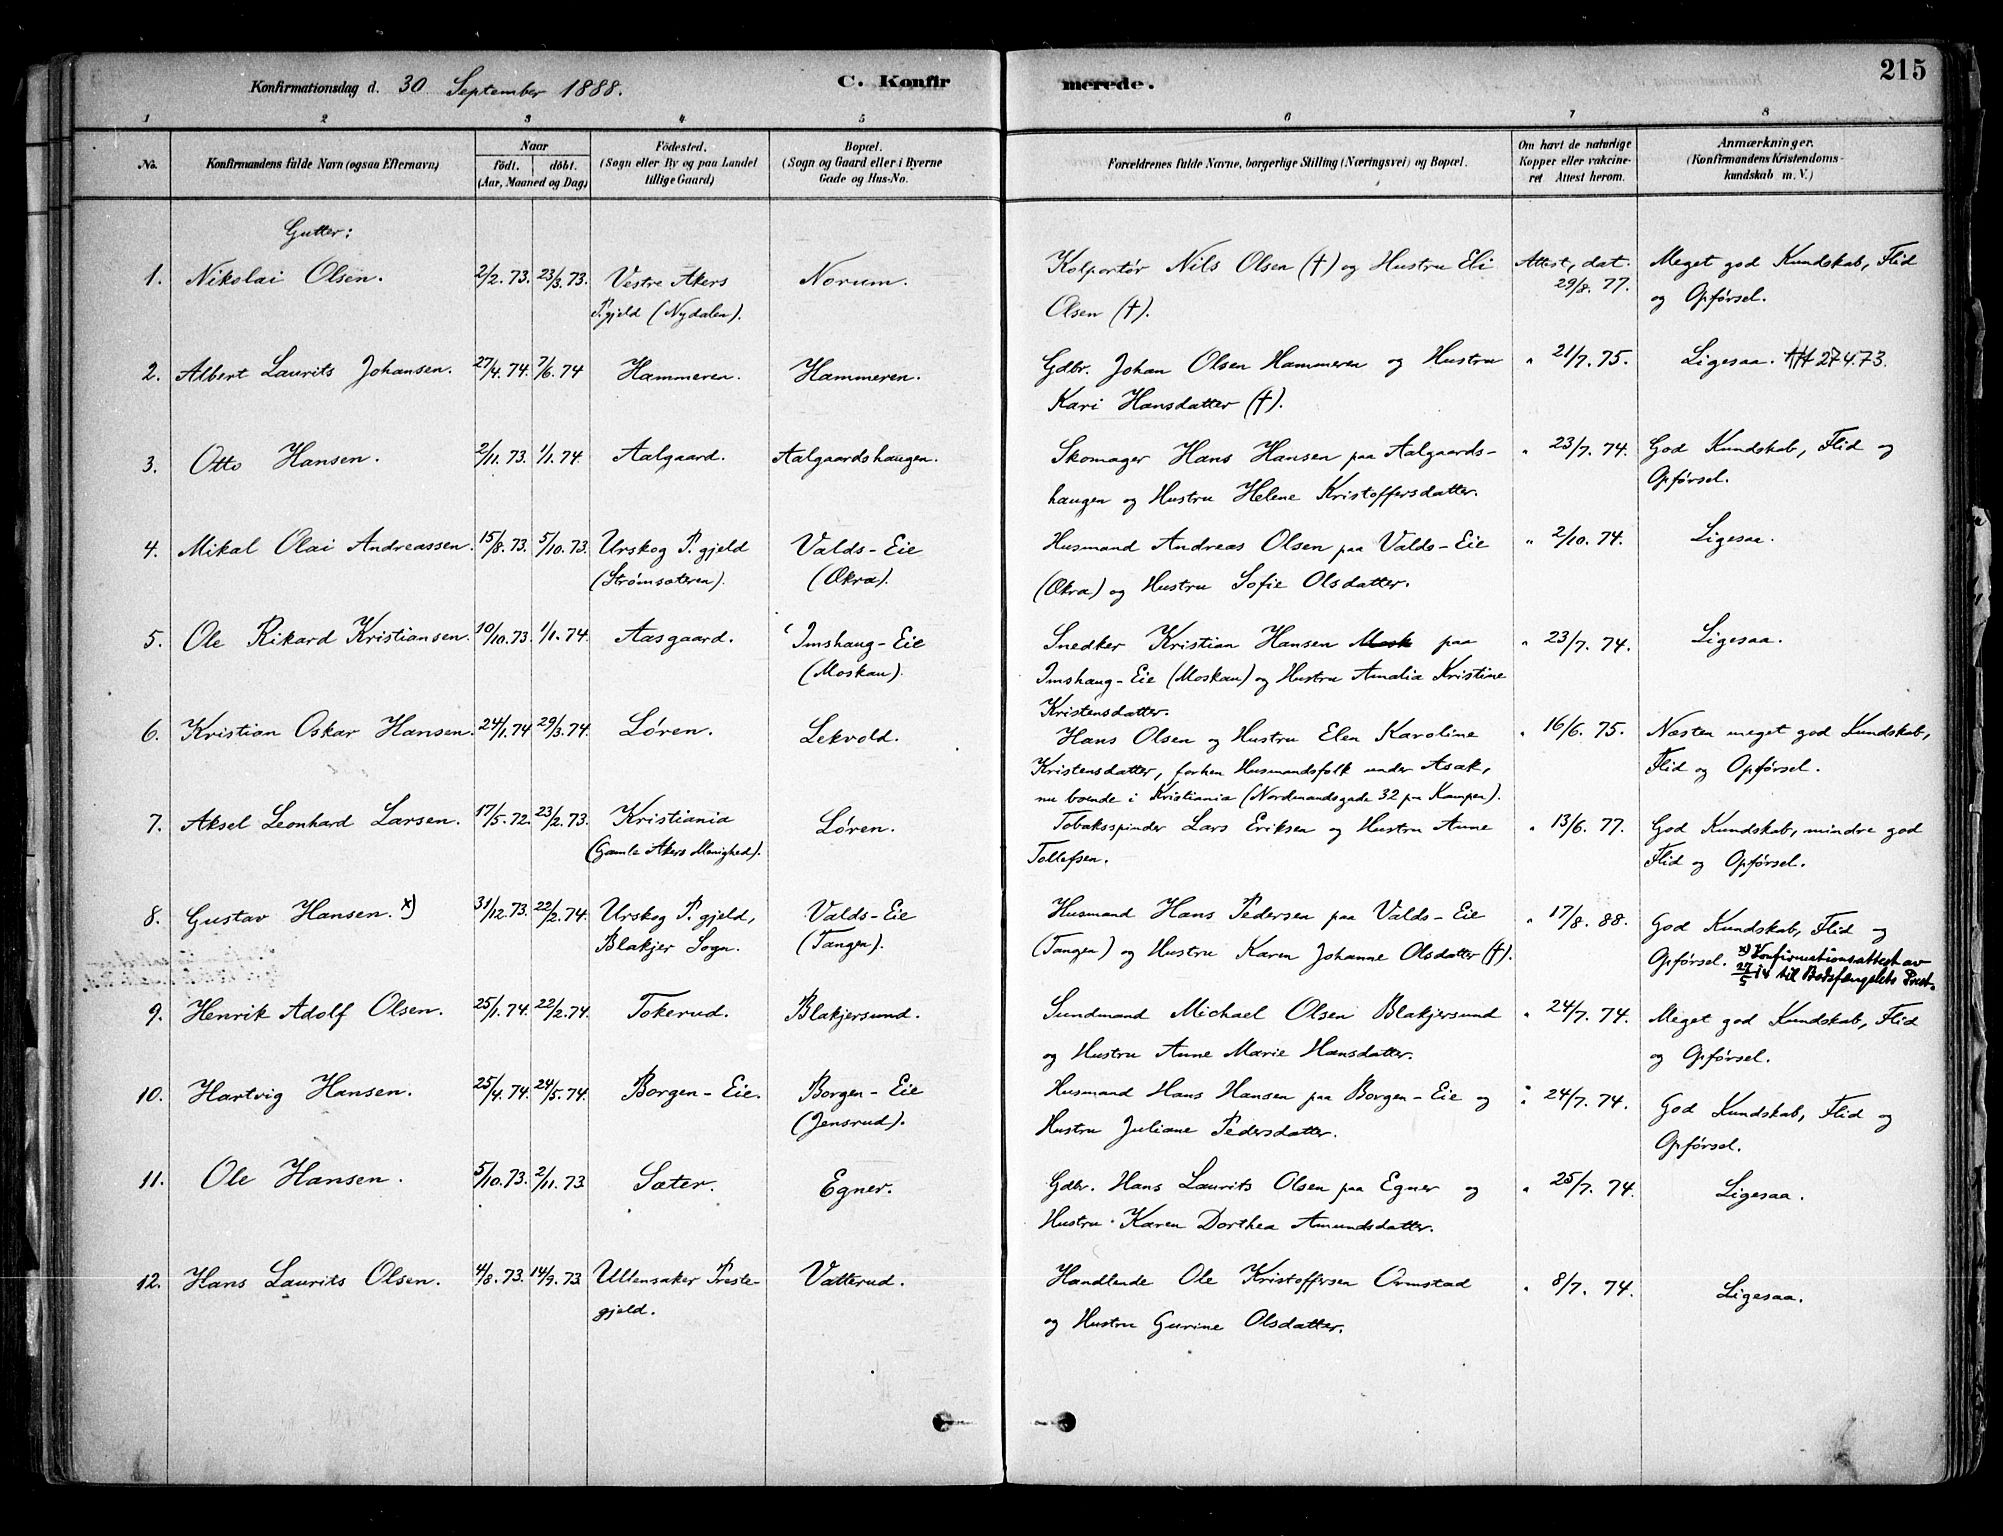 Konfirmationsdag d. 30 September 1888.
C. Konfirmerede.
215
1 2 3 4 5 6 7 8
No.
Konfirmandens fulde Navn (ogsaa Efternavn)
Naar
født. døbt.
(Aar, Maaned og Dag)
Fødested.
(Sogn eller By og paa Landet
tillige Gaard)
Bopæl.
(Sogn og Gaard eller i Byerne
Gade og Hus-No.
Forældrenes fulde Navne, borgerlige Stilling (Næringsvei) og Bopæl.
Om havt de naturlige
Kopper eller vakcine-
ret Attest herom.
Anmærkninger.
(Konfirmandens Kristendoms-
kundskab m. V.)
Gutter:
1. Nikolai Olsen. 2/2. 73. 23/3. 73. Vestre Akers Norum. Kolportør Nils Olsen (†) og Hustru Eli Attest, dat. Meget god Kundskab, Flid
P.gjeld (Nydalen). Olsen (†). 29/8. 77. og Opførsel.
2. Albert Laurits Johansen. 27/4. 74. 7/6. 74 Hammeren. Hammeren. Gdbr. Johan Olsen Hammeren og Hustru " 21/7. 75. Ligesaa. 27473.
Kari Hansdatter (†).
3. Otto Hansen. 2/11. 73. 1/1. 74. Aalgaard. Aalgaardshaugen. Skomager Hans Hansen paa Aalgaards- " 23/7. 74. God Kundskab, Flid og
haugen og Hustru Helene Kristoffersdatter. Opførsel.
4. Mikal Olai Andreassen. 15/8. 73. 5/10. 73. Urskog P.gjeld Valds-Eie Husmand Andreas Olsen paa Valds-Eie " 2/10. 74. Ligesaa.
(Strømsæteren). (Økra). (Økra) og Hustru Sofie Olsdatter.
5. Ole Rikard Kristiansen. 10/10. 73. 1/1. 74. Aasgaard. Imshaug-Eie Snedker Kristian Hansen Mosk paa " 23/7. 74. Ligesaa.
(Moskau). Imshaug-Eie (Moskau) og Hustru Amalia Kristine
Kristensdatter.
6. Kristian Oskar Hansen. 24/1. 74 29/3. 74. Løren. Lekvold. Hans Olsen og Hustru Elen Karoline " 16/6. 75. Næsten meget god Kundskab,
Kristensdatter, forhen Husmandsfolk under Asak, Flid og Opførsel.
nu boende i Kristiania (Nordmandsgade 32 paa Kampen).
7. Aksel Leonhard Larsen. 17/5. 72. 23/2. 73. Kristiania Løren. Tobaksspinder Lars Eriksen og Hustru Anne " 13/6. 77. God Kundskab, mindre god
(Gamle Akers Menighed). Tollefsen. Flid og Opførsel.
8. Gustav Hansen. x) 31/12. 73. 22/2. 74. Urskog P.gjeld, Valds-Eie Husmand Hans Pedersen paa Valds-Eie " 17/8. 88. God Kundskab, Flid og
Blakjer Sogn. (Tangen). (Tangen) og Hustru Karen Johanne Olsdatter (†). Opførsel. x) Konfirmationsattest av
27/5 14 til Bodsfængslets Prest.
9. Henrik Adolf Olsen. 25/1. 74. 22/2. 74 Tokerud. Blakjersund. Sundmand Michael Olsen Blakjersund " 24/7. 74. Meget god Kundskab, Flid
og Hustru Anne Marie Hansdatter. og Opførsel.
10. Hartvig Hansen. 25/4. 74. 24/5. 74. Borgen-Eie. Borgen-Eie Husmand Hans Hansen paa Borgen-Eie og " 24/7. 74. God Kundskab, Flid og
(Jensrud). Hustru Juliane Pedersdatter. Opførsel.
11. Ole Hansen. 5/10. 73. 2/11. 73. Sæter. Egner. Gdbr. Hans Laurits Olsen paa Egner og " 25/7. 74. Ligesaa.
Hustru Karen Dorthea Amundsdatter.
12. Hans Laurits Olsen. 4/8. 73. 14/9. 73. Ullensaker Preste- Vatterud. Handlende Ole Kristoffersen Ormstad " 8/7. 74. Ligesaa.
gjeld. og Hustru Gurine Olsdatter.